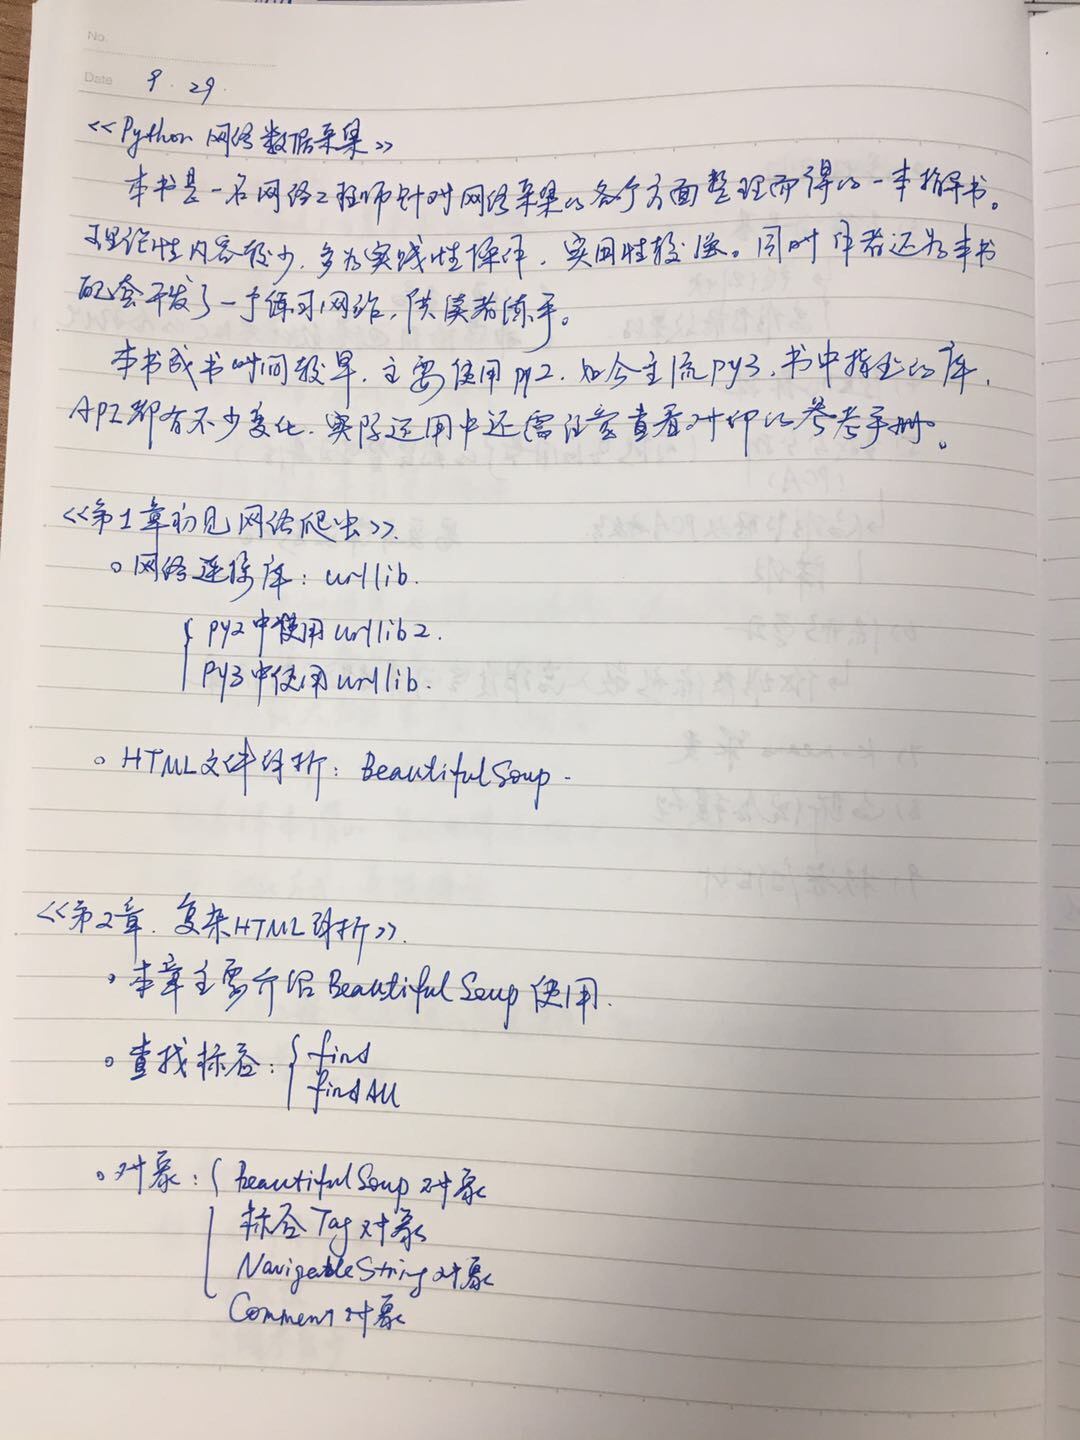 No.
Date 9.29.
<<Python 网络数据采集>>
本书是一名网络工程师针对网络采集的各个方面整理而得的一本指导书。
理论性内容较少，多为实践性操作，实用性较强。同时作者还为本书
配套开发了一个练习网站，供读者练手。
本书成书时间较早，主要使用py2，如今主流py3，书中指定的库，
API都有不少变化，实际运用中还需注意查看对应的参考手册。
<<第1章初见网络爬虫>>.
。网络连接库：urllib.
{ py2中使用urllib2.
py3中使用urllib.
。HTML文件解析：BeautifulSoup.
<<第2章. 复杂HTML解析>>.
。本章主要介绍BeautifulSoup使用.
。查找标签：{ find
findAll
。对象：{ BeautifulSoup对象
标签Tag对象
NavigableString对象
Comment对象